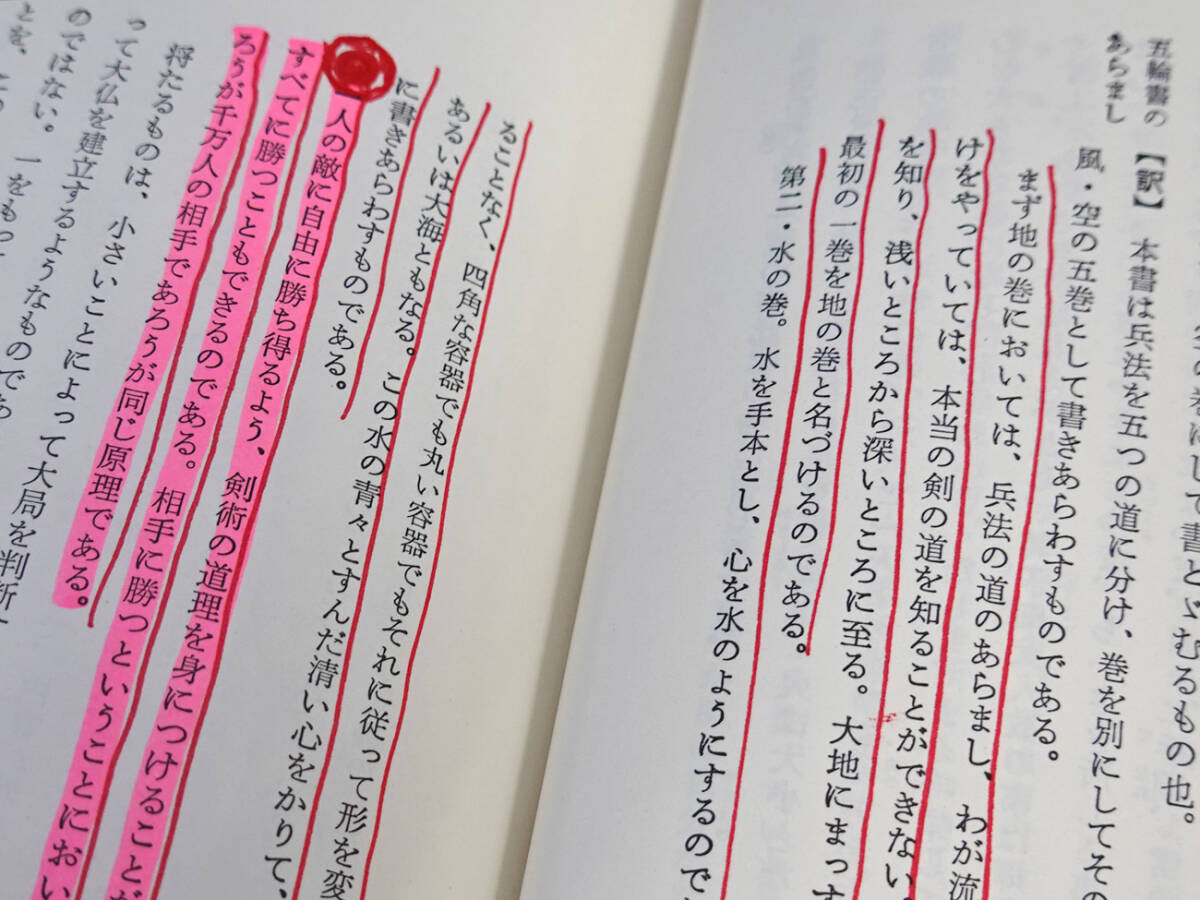 五輪書の
あらまし
して書とゞむるもの也。
【訳】 本書は兵法を五つの道に分け、巻を別にしてその
風・空の五巻として書きあらわすものである。
まず地の巻においては、兵法の道のあらまし、わが流
けをやっていては、本当の剣の道を知ることができない。
を知り、浅いところから深いところに至る。大地にまっす
最初の一巻を地の巻と名づけるのである。
第二・水の巻。水を手本とし、心を水のようにするので
ることなく、四角な容器でも丸い容器でもそれに従って形を変
あるいは大海ともなる。この水の青々とすんだ清い心をかりて、
に書きあらわすものである。
一人の敵に自由に勝ち得るよう、剣術の道理を身につけることが
すべてに勝つこともできるのである。相手に勝つということにおい
ろうが千万人の相手であろうが同じ原理である。
将たるものは、小さいことによって大局を判断
って大仏を建立するようなものであ
のではない。一をもって